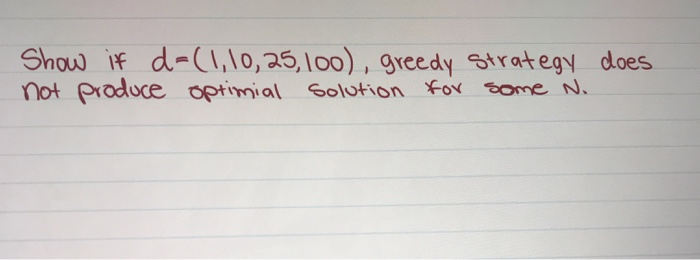 Show if d=(1,10,25,100), greedy strategy does
not produce optimial solution for some N.